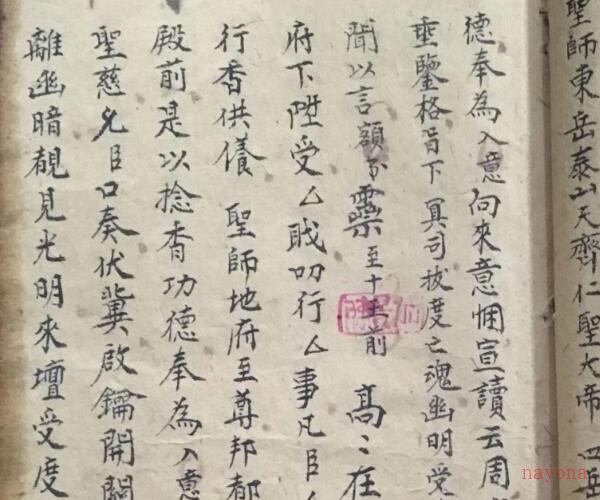 聖師東岳泰山天齊仁聖大帝 四岳
德奉為入意向來意悃宣讀云周
垂鑒格旨下冥司拔度亡魂幽明受
聞以言額示靈至十王前 高〻在
府下陞受厶戝叨行厶事凡臣厶
行香供養 聖師地府至尊邦都
殿前是以捻香功德奉為入意
聖慈允臣口奏伏冀啟鑰開關
離幽暗覩見光明來壇受度
nayona